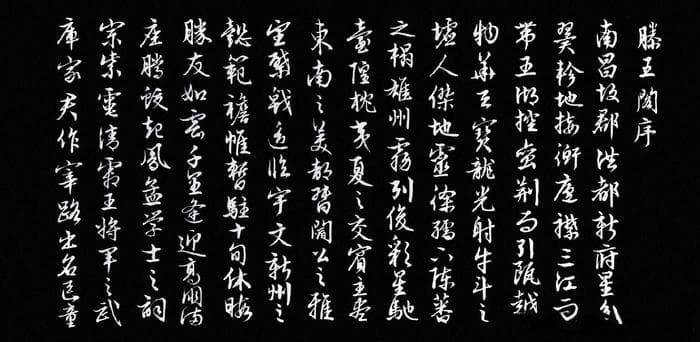 滕王閣序
南昌故郡洪都新府星分
翼軫地接衡廬襟三江而
帶五湖控蠻荊而引甌越
物華天寶龍光射牛斗之
墟人傑地靈徐孺下陳蕃
之榻雄州霧列俊彩星馳
臺隍枕夷夏之交賓主盡
東南之美都督閻公之雅
望棨戟遙臨宇文新州之
懿範襜帷暫駐十旬休暇
勝友如雲千里逢迎高朋滿
座騰蛟起鳳孟学士之詞
宗紫電清霜王將軍之武
庫家君作宰路出名區童